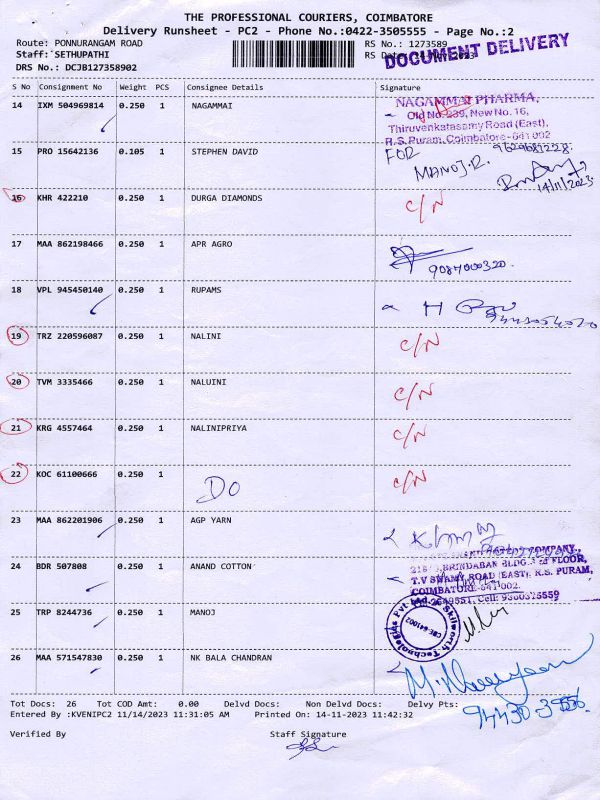 THE PROFESSIONAL COURIERS, COIMBATORE
Delivery Runsheet - PC2 - Phone No.:0422-3505555 - Page No.:2
Route: PONNURANGAM ROAD RS No.: 1273589
Staff: SETHUPATHI RS Date
DOCUMENT DELIVERY
DRS No.: DCJB127358902
S No Consignment No Weight PCS Consignee Details Signature
14 IXM 504969814 0.250 1 NAGAMMAI
NAGAMMAI PHARMA,
Old No. 239, New No. 16,
Thiruvenkatasamy Road (East),
R.S. Puram, Coimbatore-641 002
15 PRO 15642136 0.105 1 STEPHEN DAVID
FOR 9629687228
MANOJ.R.
14/11/2023
16 KHR 422210 0.250 1 DURGA DIAMONDS C/N
17 MAA 862198466 0.250 1 APR AGRO
9087000320
18 VPL 945450140 0.250 1 RUPAMS
19 TRZ 220596087 0.250 1 NALINI C/N
20 TVM 3335466 0.250 1 NALUINI C/N
21 KRG 4557464 0.250 1 NALINIPRIYA C/N
22 KOC 61100666 0.250 1 C/N
DO
23 MAA 862201906 0.250 1 AGP YARN
COMPANY,
BRINDABAN BLDG, FLOOR,
24 BDR 507808 0.250 1 ANAND COTTON
T.V SWAMY ROAD (EAST), R.S. PURAM,
COIMBATORE-641 002.
25 TRP 8244736 0.250 1 MANOJ
Skilworth Technologies Pvt Ltd
CBE-641002
26 MAA 571547830 0.250 1 NK BALA CHANDRAN
Tot Docs: 26 Tot COD Amt: 0.00 Delvd Docs: Non Delvd Docs: Delvy Pts:
Entered By :KVENIPC2 11/14/2023 11:31:05 AM Printed On: 14-11-2023 11:42:32
Verified By Staff Signature